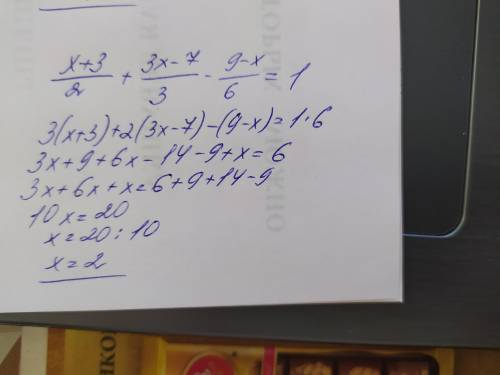 x+3/2 + 3x-7/3 - 9-x/6 = 1
3(x+3)+2(3x-7)-(9-x)=1·6
3x+9+6x-14-9+x=6
3x+6x+x=6+9+14-9
10x=20
x=20:10
x=2